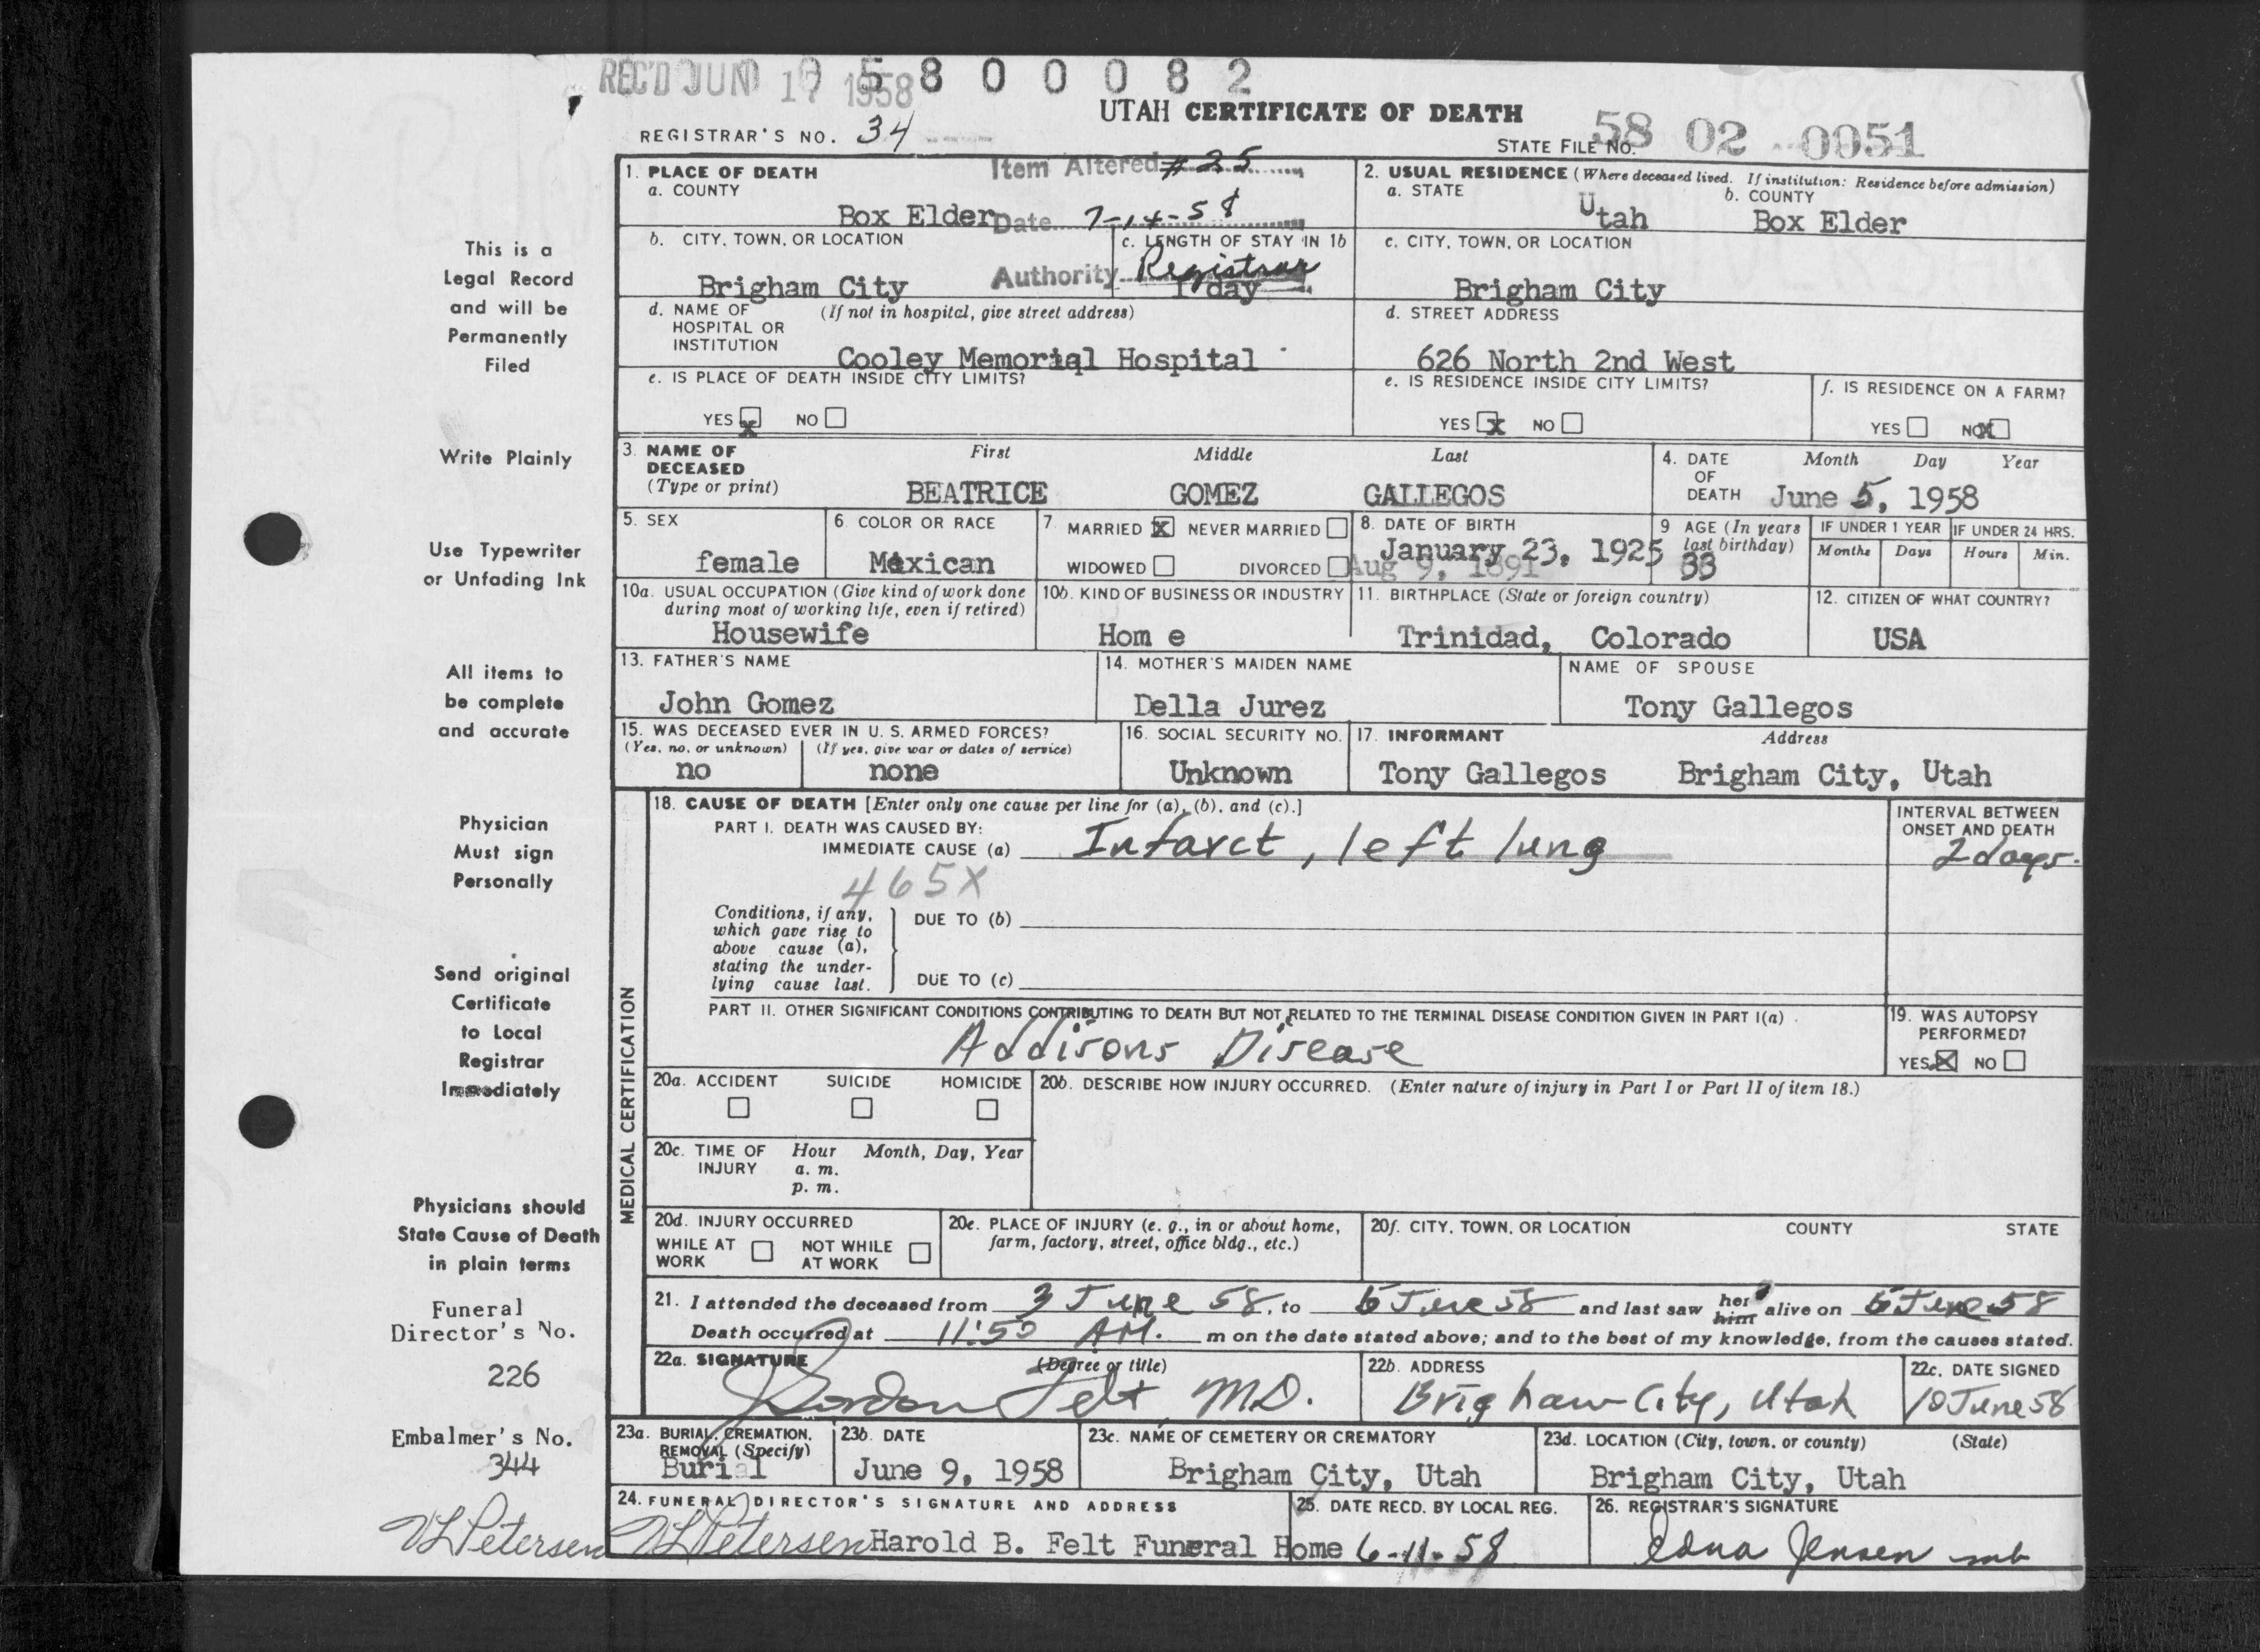 REC'D JUN 17 1958
5 8 0 0 0 8 2
UTAH CERTIFICATE OF DEATH
REGISTRAR'S NO. 34
STATE FILE NO. 58 02 0051
Item Altered # 25
Date 7-14-58
Authority Registrar
1. PLACE OF DEATH
a. COUNTY
Box Elder
2. USUAL RESIDENCE (Where deceased lived. If institution: Residence before admission)
a. STATE
Utah
b. COUNTY
Box Elder
b. CITY, TOWN, OR LOCATION
Brigham City
c. LENGTH OF STAY IN 1b
1 day
c. CITY, TOWN, OR LOCATION
Brigham City
d. NAME OF HOSPITAL OR INSTITUTION (If not in hospital, give street address)
Cooley Memorial Hospital
d. STREET ADDRESS
626 North 2nd West
e. IS PLACE OF DEATH INSIDE CITY LIMITS?
YES X NO
e. IS RESIDENCE INSIDE CITY LIMITS?
YES X NO
f. IS RESIDENCE ON A FARM?
YES NO X
3. NAME OF DECEASED (Type or print)
First Middle Last
BEATRICE GOMEZ GALLEGOS
4. DATE OF DEATH Month Day Year
June 5, 1958
5. SEX
female
6. COLOR OR RACE
Mexican
7. MARRIED X NEVER MARRIED
WIDOWED DIVORCED
8. DATE OF BIRTH
January 23, 1925
Aug 9, 1891
9 AGE (In years last birthday)
33
IF UNDER 1 YEAR
Months Days
IF UNDER 24 HRS.
Hours Min.
10a. USUAL OCCUPATION (Give kind of work done during most of working life, even if retired)
Housewife
10b. KIND OF BUSINESS OR INDUSTRY
Hom e
11. BIRTHPLACE (State or foreign country)
Trinidad, Colorado
12. CITIZEN OF WHAT COUNTRY?
USA
13. FATHER'S NAME
John Gomez
14. MOTHER'S MAIDEN NAME
Della Jurez
NAME OF SPOUSE
Tony Gallegos
15. WAS DECEASED EVER IN U. S. ARMED FORCES?
(Yes, no, or unknown) (If yes, give war or dates of service)
no none
16. SOCIAL SECURITY NO.
Unknown
17. INFORMANT Address
Tony Gallegos Brigham City, Utah
MEDICAL CERTIFICATION
18. CAUSE OF DEATH [Enter only one cause per line for (a), (b), and (c).]
PART I. DEATH WAS CAUSED BY:
IMMEDIATE CAUSE (a) Infarct, left lung
INTERVAL BETWEEN ONSET AND DEATH
2 days.
465X
Conditions, if any, which gave rise to above cause (a), stating the underlying cause last.
DUE TO (b)
DUE TO (c)
PART II. OTHER SIGNIFICANT CONDITIONS CONTRIBUTING TO DEATH BUT NOT RELATED TO THE TERMINAL DISEASE CONDITION GIVEN IN PART I(a)
Addisons Disease
19. WAS AUTOPSY PERFORMED?
YES X NO
20a. ACCIDENT SUICIDE HOMICIDE
20b. DESCRIBE HOW INJURY OCCURRED. (Enter nature of injury in Part I or Part II of item 18.)
20c. TIME OF INJURY Hour Month, Day, Year
a. m.
p. m.
20d. INJURY OCCURRED
WHILE AT WORK NOT WHILE AT WORK
20e. PLACE OF INJURY (e. g., in or about home, farm, factory, street, office bldg., etc.)
20f. CITY, TOWN, OR LOCATION COUNTY STATE
21. I attended the deceased from 3 June 58, to 5 June 58 and last saw her him alive on 5 June 58
Death occurred at 11:50 AM. m on the date stated above; and to the best of my knowledge, from the causes stated.
22a. SIGNATURE (Degree or title)
Gordon Felt M.D.
22b. ADDRESS
Brigham City, Utah
22c. DATE SIGNED
10 June 58
23a. BURIAL, CREMATION, REMOVAL (Specify)
Burial
23b. DATE
June 9, 1958
23c. NAME OF CEMETERY OR CREMATORY
Brigham City, Utah
23d. LOCATION (City, town, or county) (State)
Brigham City, Utah
24. FUNERAL DIRECTOR'S SIGNATURE AND ADDRESS
VL Petersen Harold B. Felt Funeral Home
25. DATE RECD. BY LOCAL REG.
6-11-58
26. REGISTRAR'S SIGNATURE
Edna Jensen mb
This is a
Legal Record
and will be
Permanently
Filed
Write Plainly
Use Typewriter
or Unfading Ink
All items to
be complete
and accurate
Physician
Must sign
Personally
Send original
Certificate
to Local
Registrar
Immediately
Physicians should
State Cause of Death
in plain terms
Funeral
Director's No.
226
Embalmer's No.
344
VL Petersen